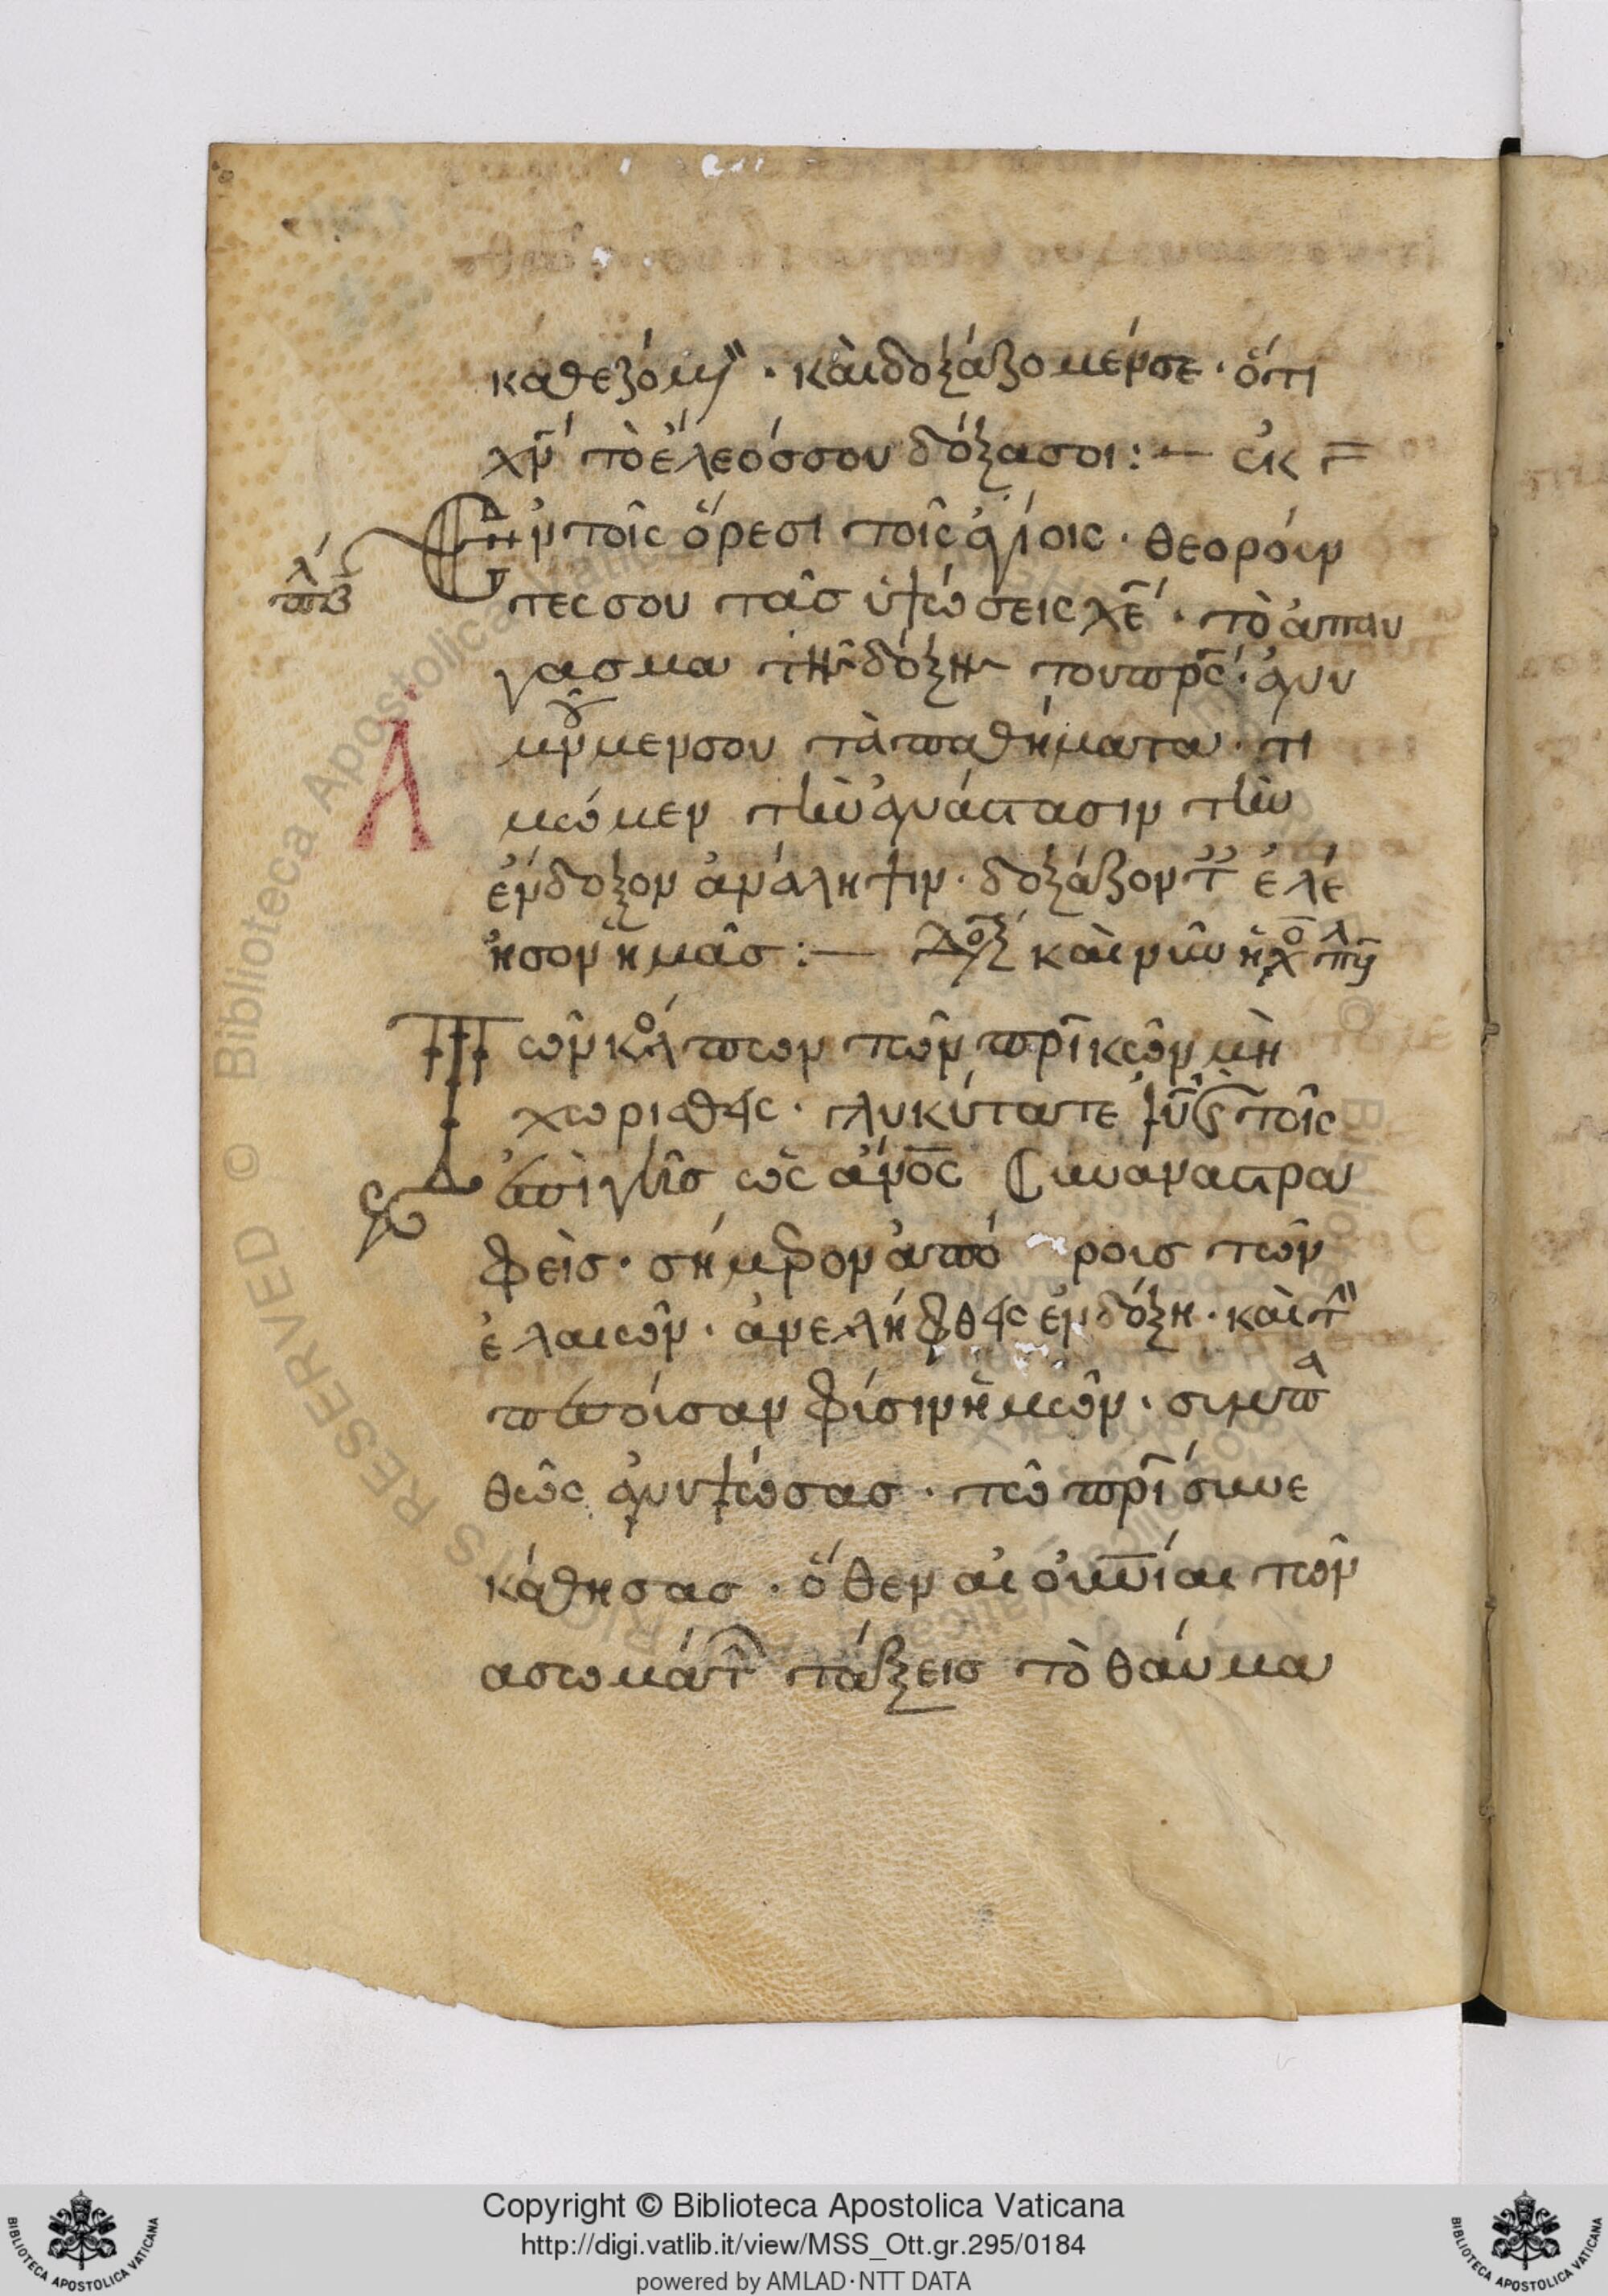 καθεζόμ(εν) · και δοξάζομέν σε · ὅτι
χν τὸ ἔλεός σου δόξα σοι :— ἐκ
Εν τοῖς ὄρεσι τοῖς ἁγίοις · θεορόυν
πλ β
τες σου τὰσ ὑψώσεις χέ · τὸ ἀπαυ
γασμα τῆς δόξης του πρς · ἀνυ
Α
μνουμεν σου τὰ παθήματα · τι
μῶμεν τὴν ἀνάστασιν τὴν
ἐνδοξον ἀνάληψιν · δοξάζοντ ἐλέ
ησον ἡμᾶσ :— Δοξ και νῦν ἠχο πλ
Τῶν κόλπων τῶν πρικῶν μὴ
χωρισθεὶς · γλυκύτατε ιυ και τοῖς
ἐπὶ γῆσ ὡς ανος συναναστρα
φεὶσ · σήμερον ἀπό ροισ τῶν
ἐλαιῶν · ἀνελήφθης ἐν δόξη · και τ
πεσόισαν φίσιν ἡμῶν · σιμπα
θῶς ἀνυψώσας · τῶ πρι συνε
κάθησασ · ὅθεν αἱ ουνιαι τῶν
ασωμάτ τάξεισ τὸ θάυμα
Copyright © Biblioteca Apostolica Vaticana
http://digi.vatlib.it/view/MSS_Ott.gr.295/0184
powered by AMLAD·NTT DATA
BIBLIOTECA APOSTOLICA VATICANA
BIBLIOTECA APOSTOLICA VATICANA